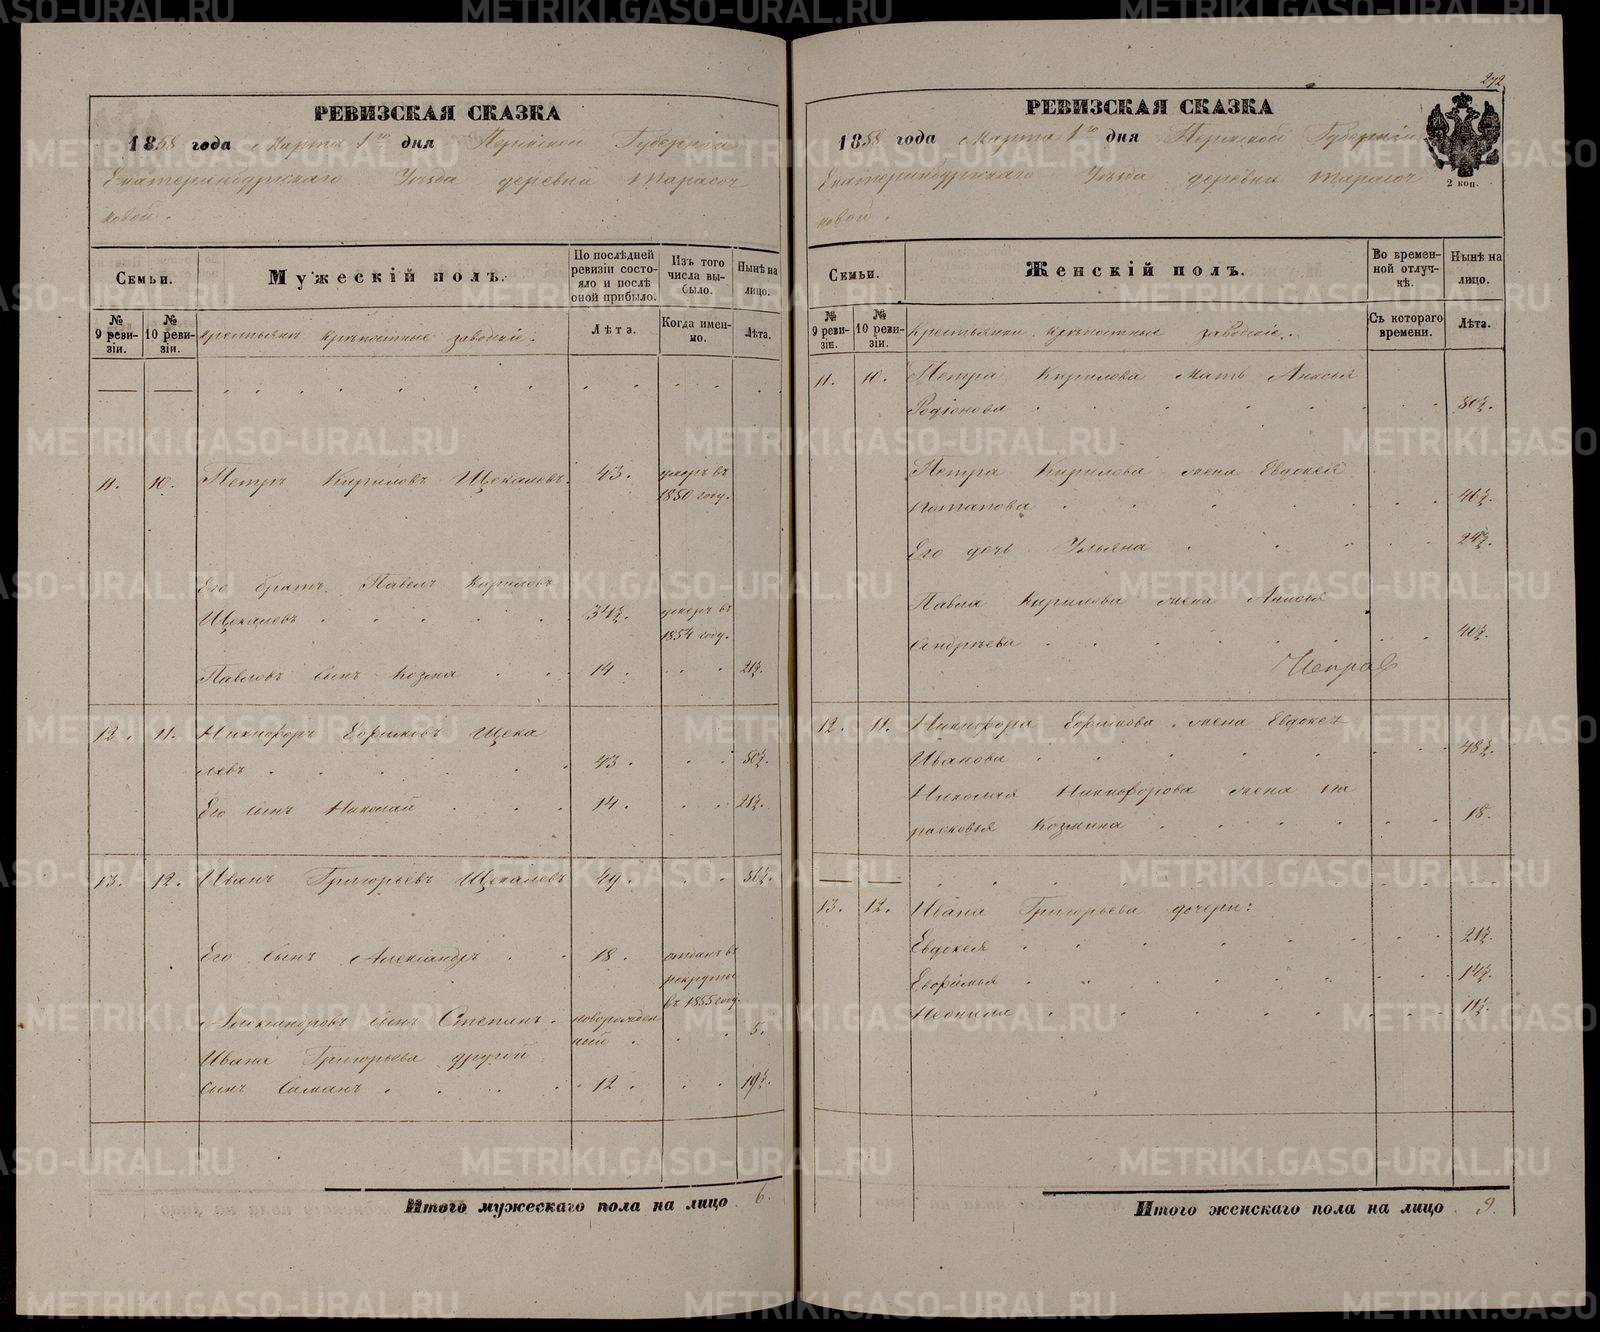 РЕВИЗСКАЯ СКАЗКА
1858 года Марта 1го дня Пермской Губернiи
Екатеринбургскаго Уѣзда деревни Тарасо
ковой.
Семьи.
Мужескiй полъ.
По послѣдней
ревизiи состо-
яло и послѣ
оной прибыло.
Изъ того
числа вы-
было.
Нынѣ на
лицо.
№
9 реви-
зiи.
№
10 реви-
зiи.
Крестьяне крѣпостные заводскiе.
Лѣта.
Когда имен-
но.
Лѣта.
11. 10. Петръ Кириловъ Щекалевъ. 43. умеръ въ
1850 году.
Его братъ Павелъ Кириловъ
Щекалевъ 34½. умеръ въ
1854 году.
Павловъ сынъ Козма 14. 21½.
12. 11. Никифоръ Ефимовъ Щека
левъ 43. 50½.
Его сынъ Николай 14. 21½.
13. 12. Иванъ Григорьевъ Щекалевъ 49. 56½.
Его сынъ Александръ 18. отданъ въ
рекруты
въ 1855 году.
Александровъ сынъ Степанъ. новорожден
ный 5.
Ивана Григорьева другой
сынъ 12. 19½.
Итого мужескаго пола на лицо 6.
272
РЕВИЗСКАЯ СКАЗКА
1858 года Марта 1го дня Пермской Губернiи
2 коп.
Екатеринбургскаго Уѣзда деревни Тарасо
ковой.
Семьи.
Женскiй полъ.
Во времен-
ной отлуч-
кѣ.
Нынѣ на
лицо.
№
9 реви-
зiи.
№
10 реви-
зiи.
Крестьянки крѣпостные заводскiе.
Съ котораго
времени.
Лѣта.
11. 10. Петра Кирилова мать Анисья
Родiонова 80½.
Петра Кирилова жена Евдокея
Потапова 46½.
Его дочь Ульяна 24½.
Павла Кирилова жена Анисья
Андреева 40½.
12. 11. Никифора Ефимова жена Евдокея
Иванова 48½.
Николая Никифорова жена Па
расковья Козмина 18.
13. 12. Ивана Григорьева дочери:
Евдокея 21½.
Ефимья 14½.
Неонила 11½.
Итого женскаго пола на лицо 9.
METRIKI.GASO-URAL.RU